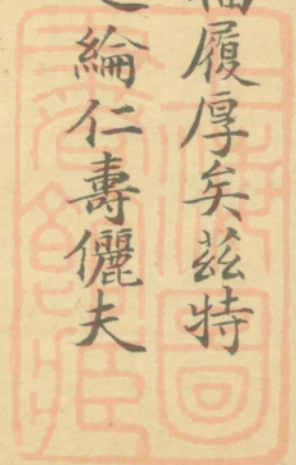 履厚矣茲特
綸仁壽儷夫